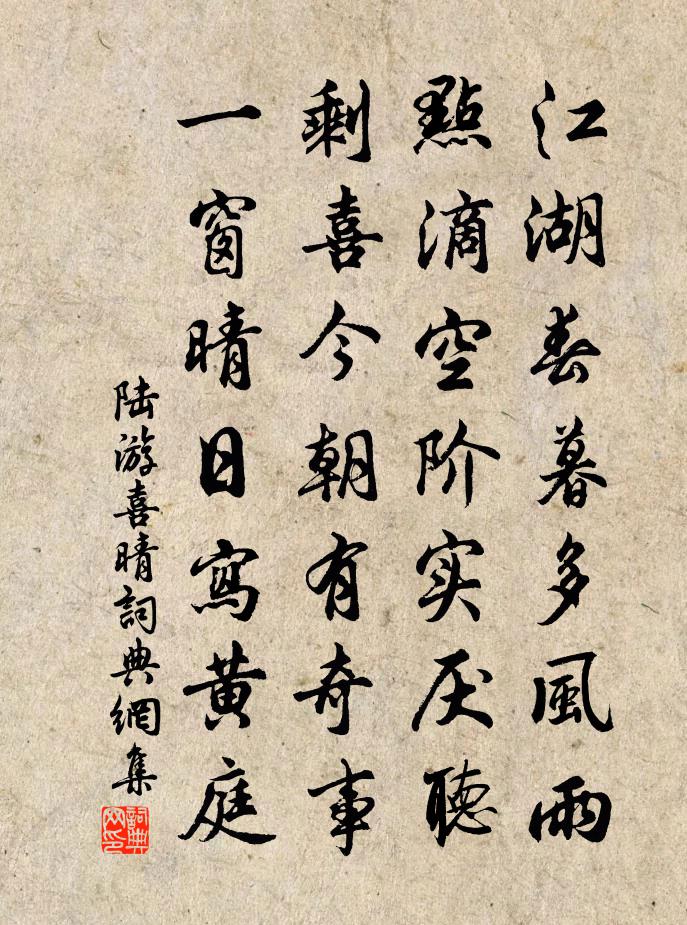 江湖春暮多風雨
點滴空阶实厌聽
剩喜今朝有奇事
一窗晴日寫黄庭
陆游喜晴詞典網集
詞典网印